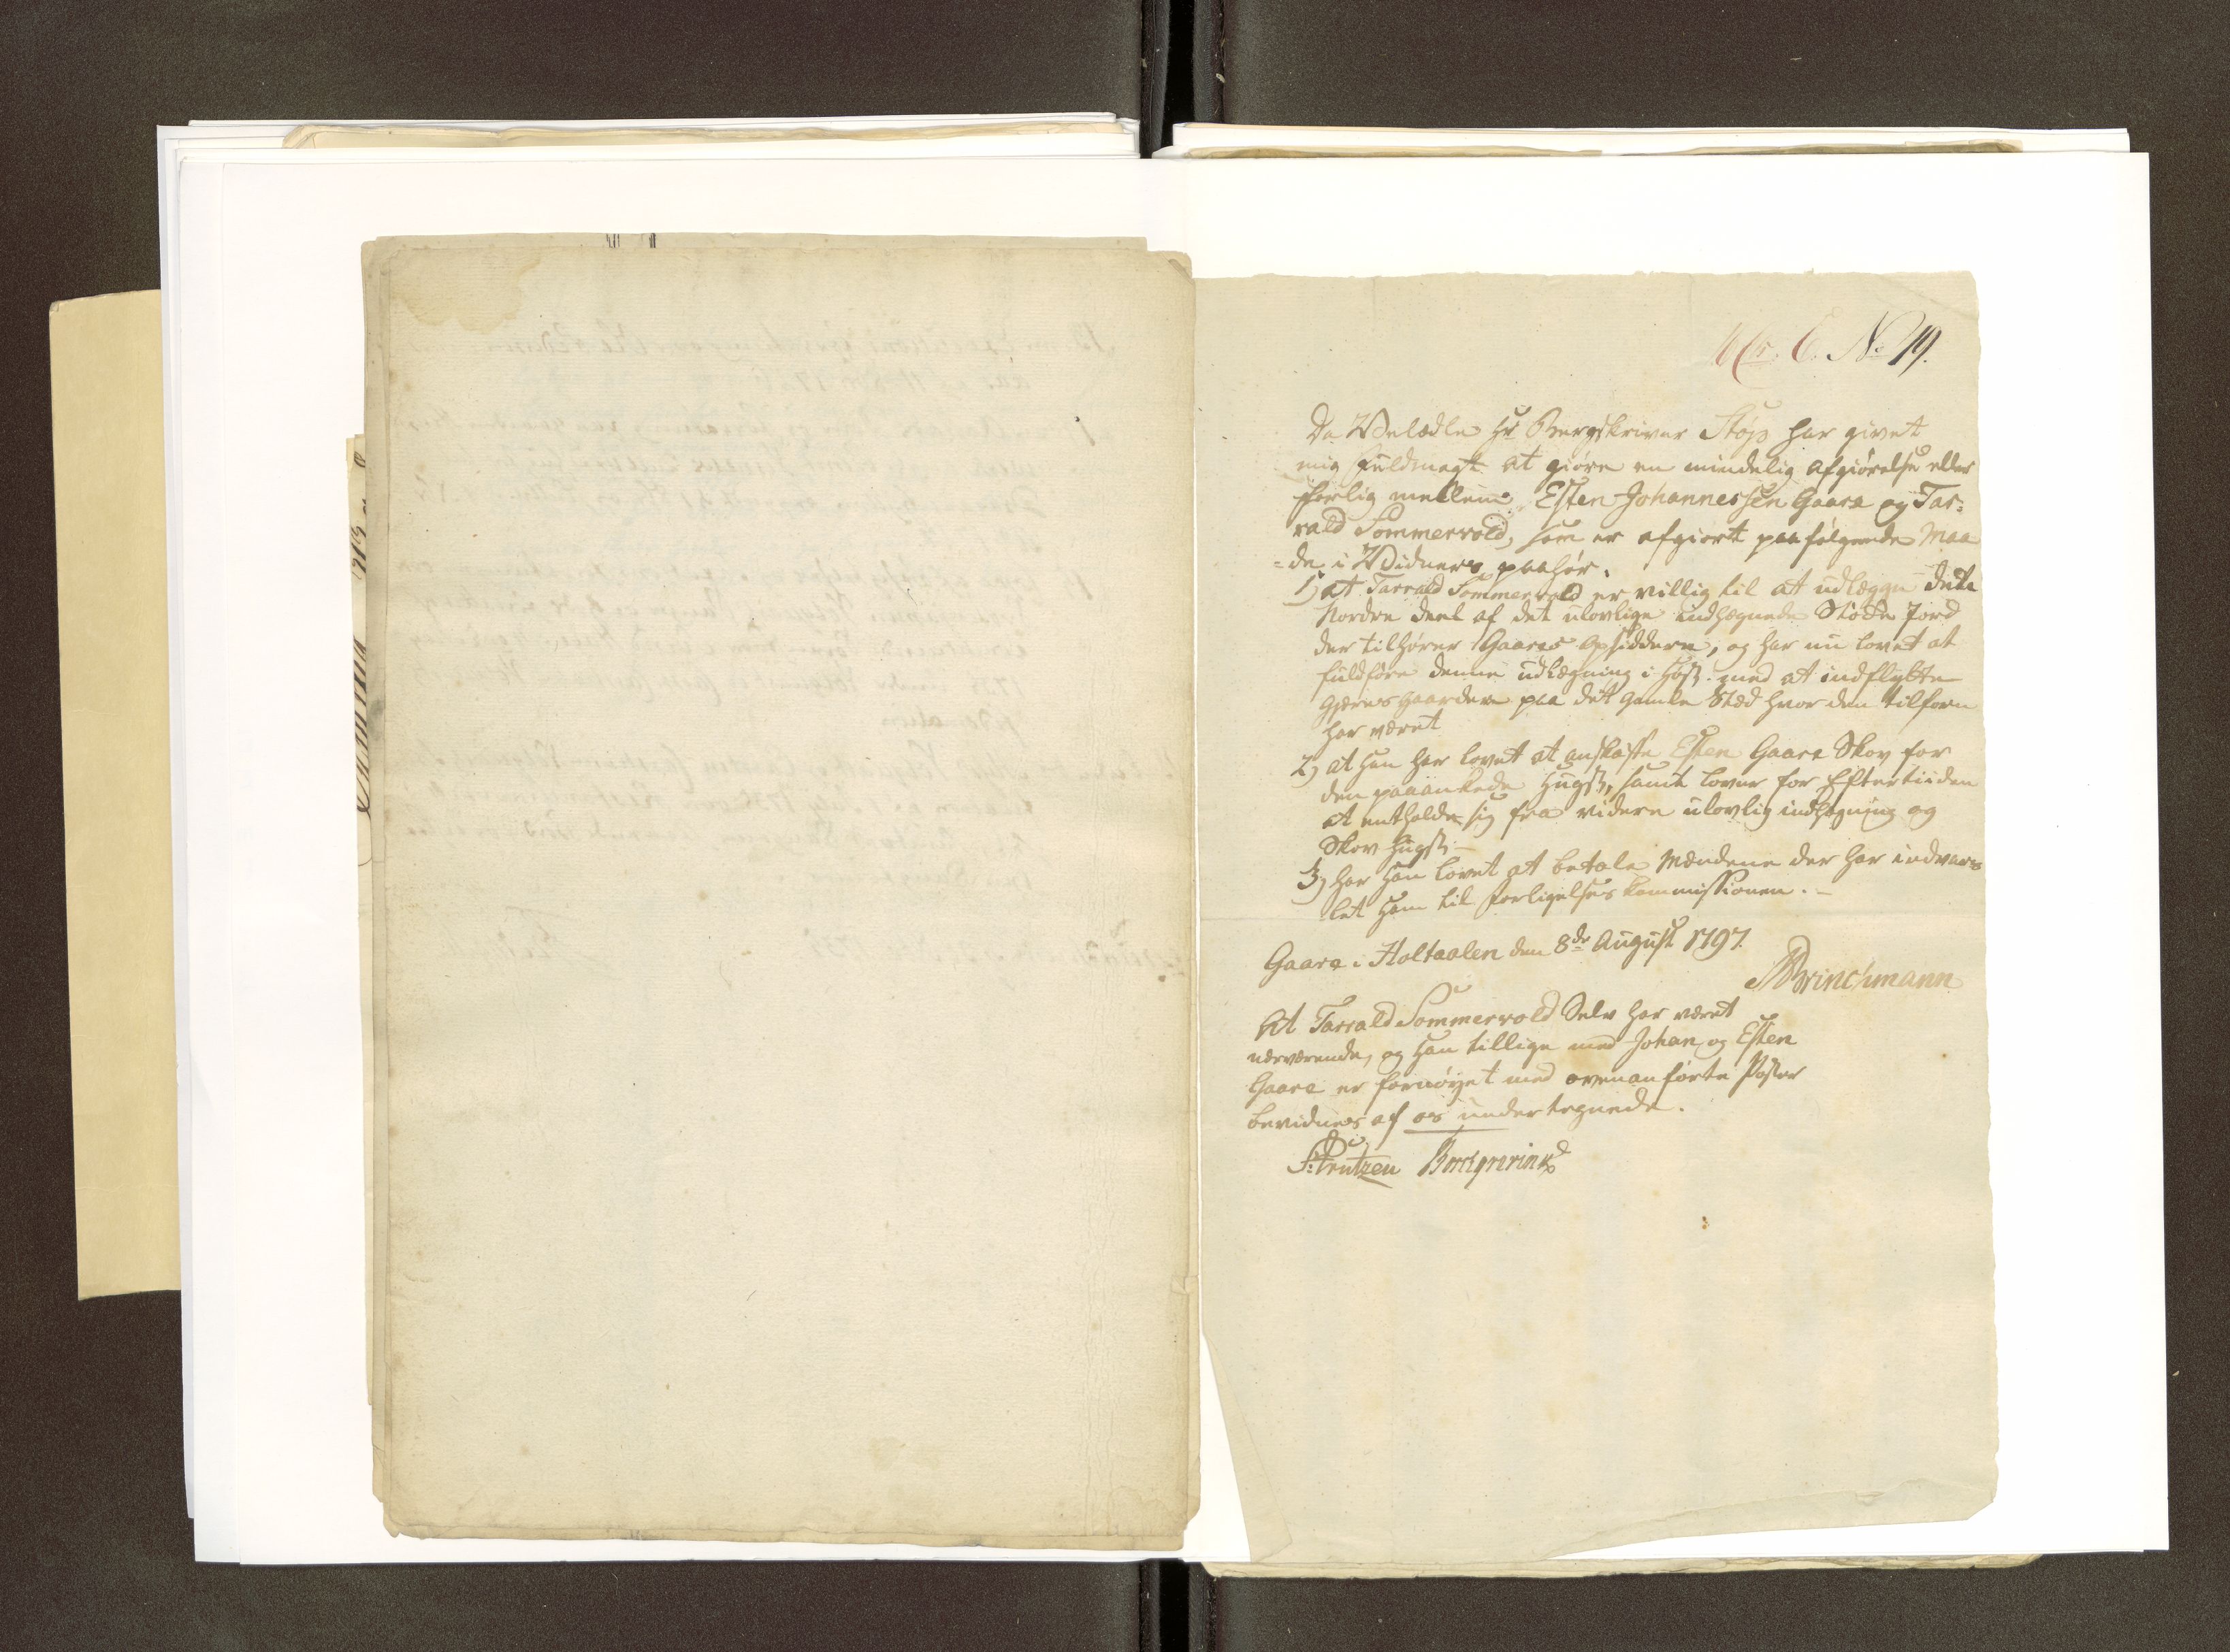 C. No 19.
Da Velædle Hr Bergskriver Støp har givet
mig Fuldmagt at giøre en mindelig afgiørelse eller
forlig mellem Esten Johannessen Gaare og Tar-
rald Sommervold, som er afgiort paa følgende Maa
=de i Vidners paahør.
1) at Tarrald Sommervold er villig til at udlægge
Nordre deel af det ulovlige indhægnede Støcke Jord
der tilhører Gaares Opsiddere, og har nu lovet at
fuldføre denne udlægning i Høst med at indflytte
Gjæresgaardene paa det gamle Stæd hvor den tilforn
har været
2) at han har lovet at Esten Gaare Skov for
den paaankede Hugst, samt lover for Eftertiiden
at entholde sig fra videre ulovlig indhegning og
Skov Hugst.-
3) har han lovet at betale Mændene der har
let ham til forligelses kommissionen.-
Gaare i Holtaalen den 8de August 1797.
Brinchmann
At Tarrald Sommervold Selv har været
nærværende, og han tillige med Johan og Esten
Gaare er fornøyet med ovenanførte Poster
bevidnes af os undertegnede.
Borchgrevink